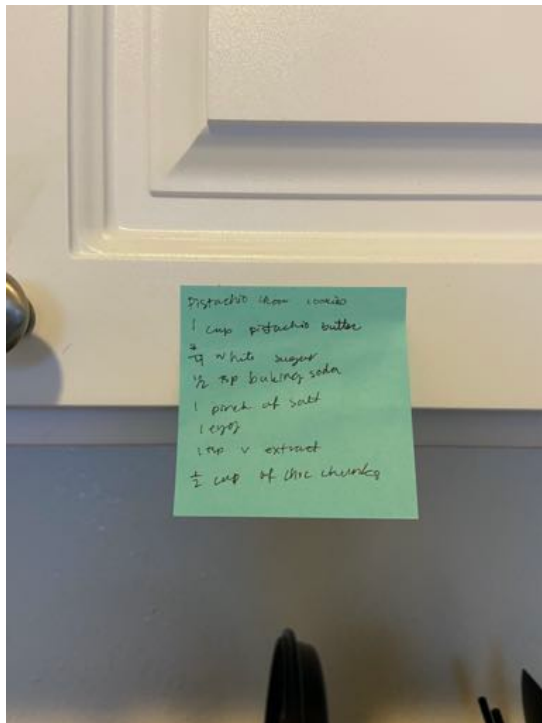 Pistachio choc cookies
1 cup pistachio butter
3/4 white sugar
1/2 tsp baking soda
1 pinch of salt
1 egg
1 tsp v extract
1/2 cup of choc chunks